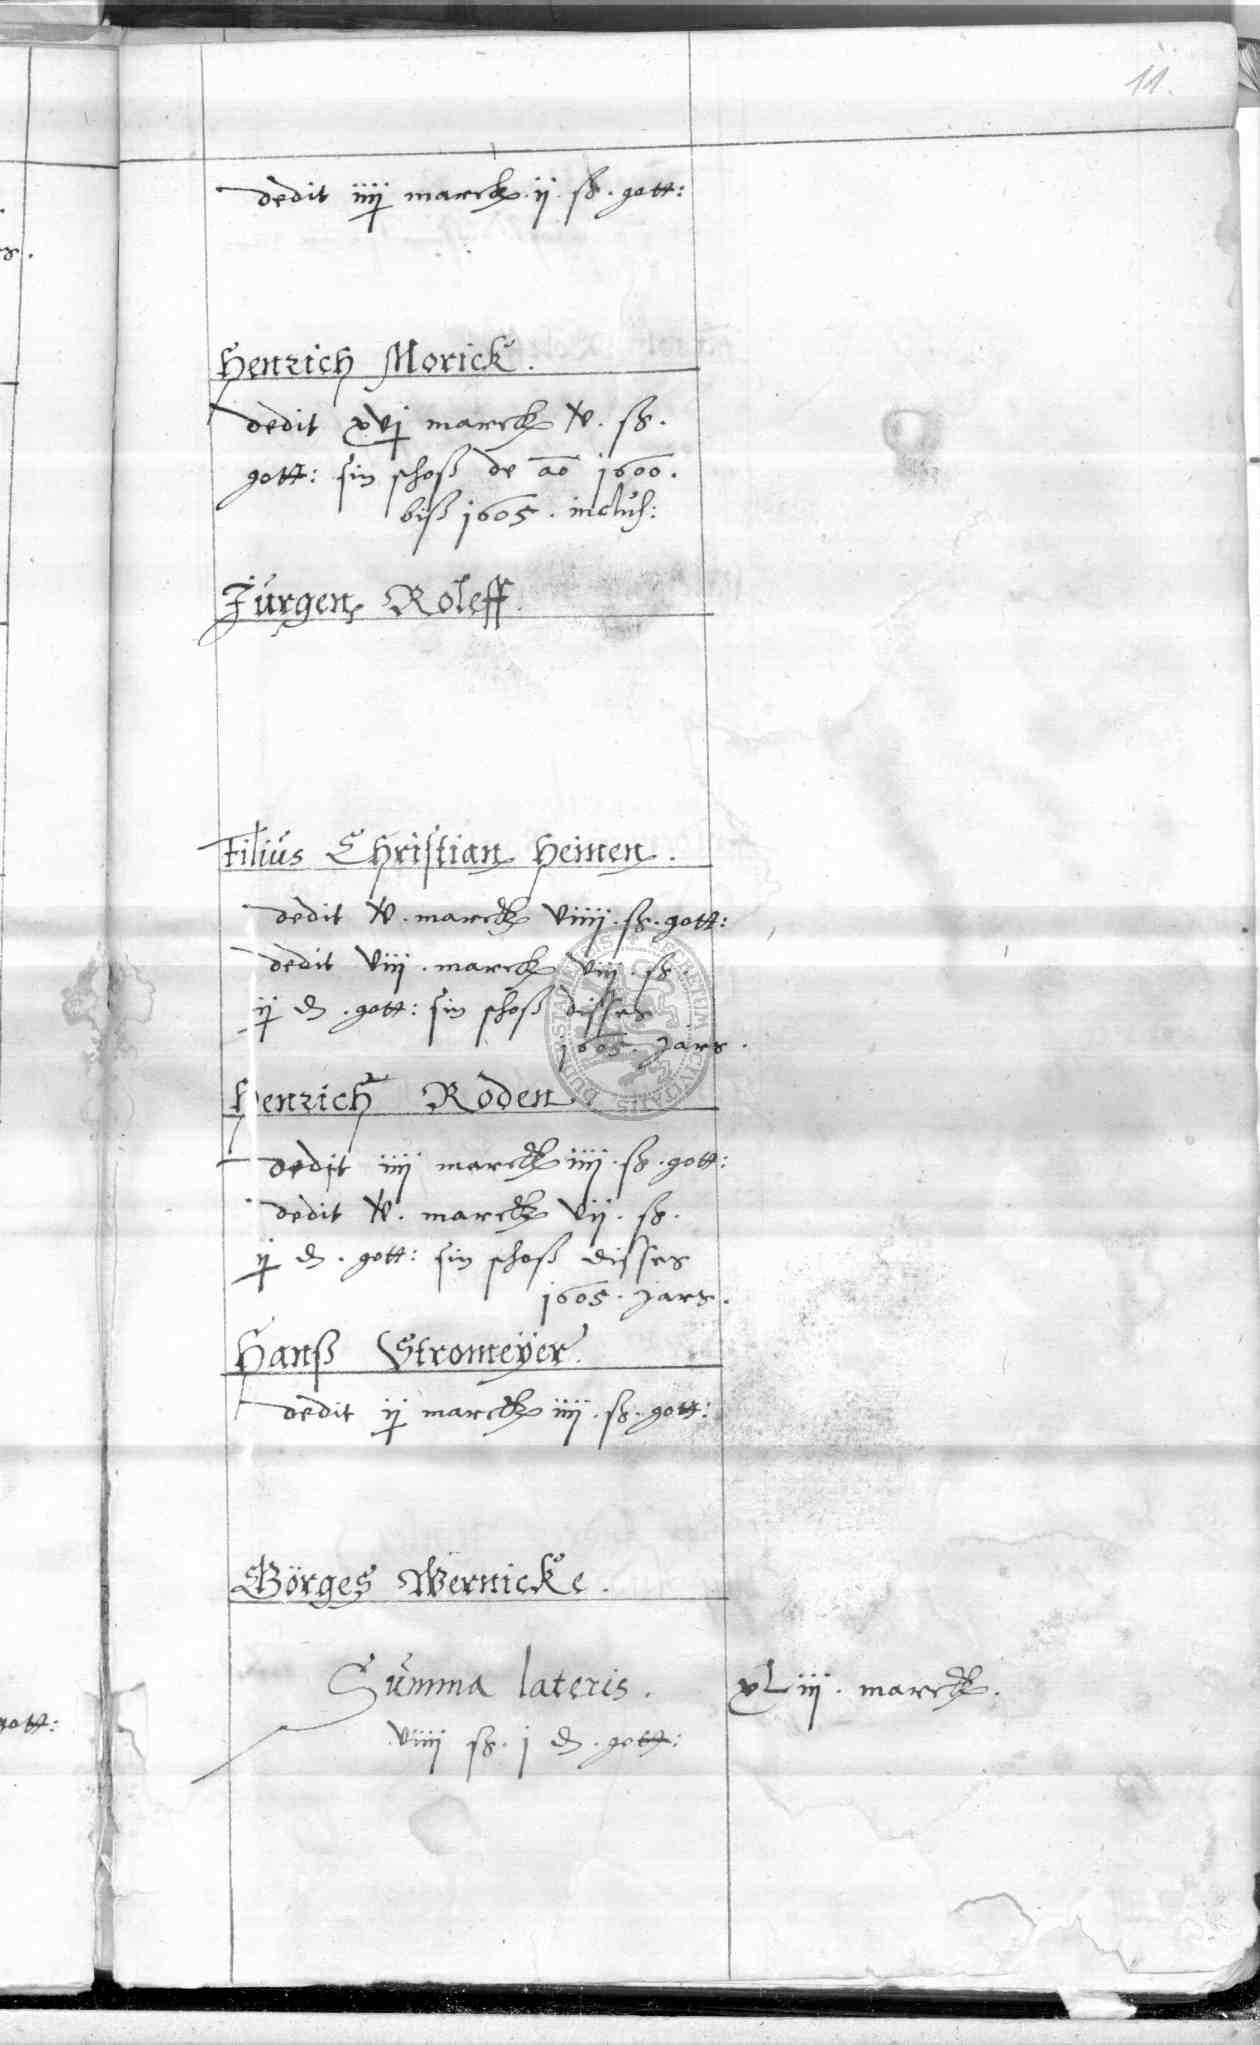 11.
dedit iiij marck ij ß. gott:
Henrich Morick.
dedit xvj marck v. ß.
gott: sin schoß de ao 1600.
biß 1605. inclus:
Jürgen Roleff.
Filius Christian Heinen.
dedit v. marck viiij. ß. gott:
dedit viij. marck viij. ß.
ij d. gott: sin schoß disses
1605. Jars.
Henrich Roden.
dedit iiij marck iiij. ß. gott:
dedit v. marck vij. ß.
ij d. gott: sin schoß disses
1605. Jars.
Hanß Stromeÿer.
dedit ij marck iiij. ß. gott:
Görges Wernicke.
Summa lateris. xLiij. marck.
viiij ß. j d. gott:
gott: